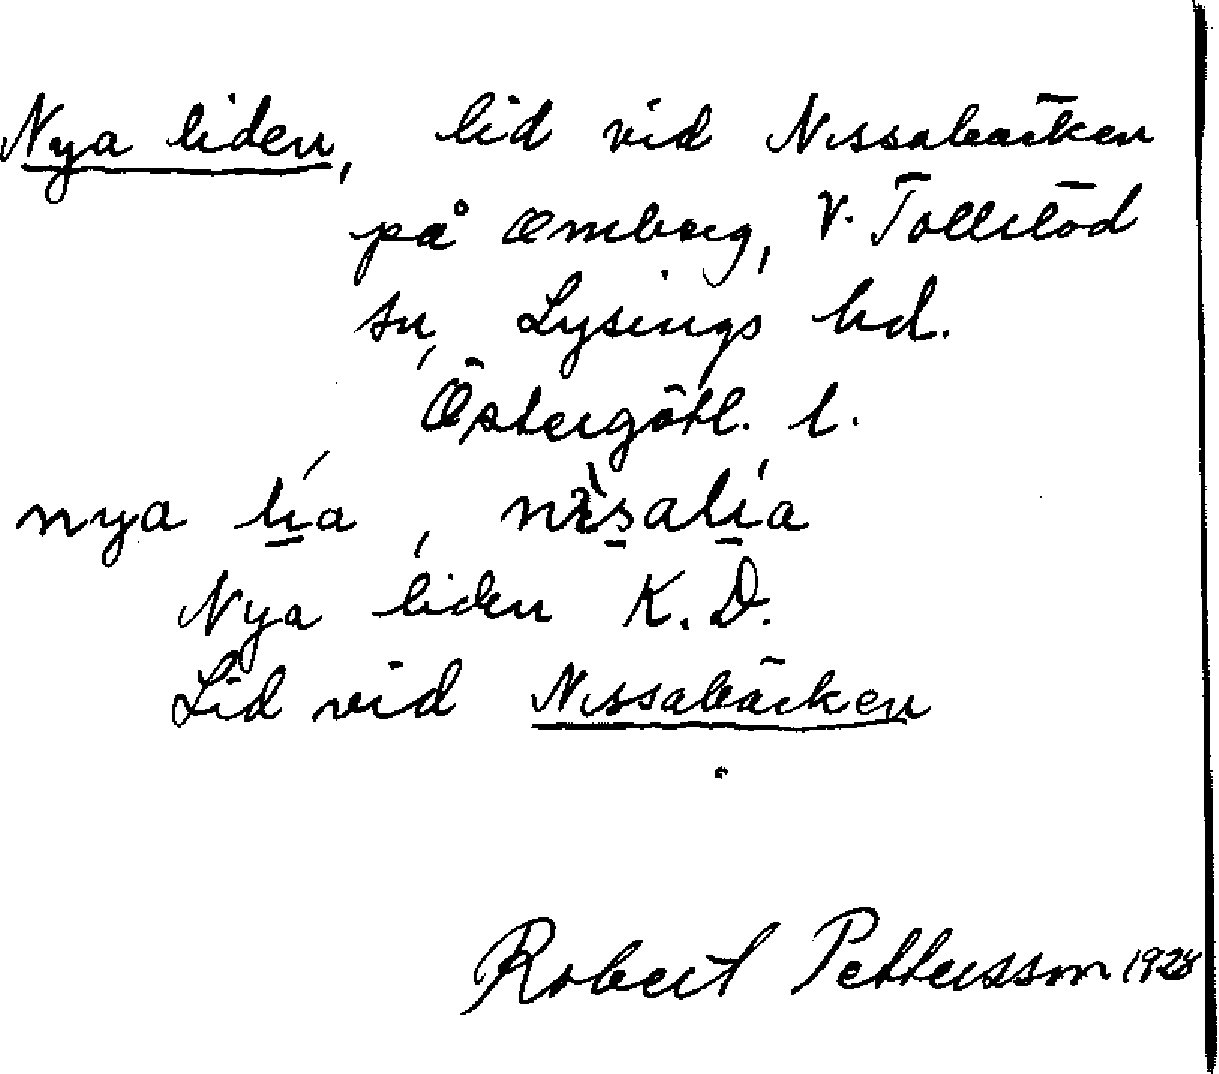 Nya liden, lid vid Nissabäcken
på Omberg, V. Tollstad
sn, Lysings hd.
Östergötl. l.
nya lia, nisalia
Nya liden K. D.
Lid vid Nissabäcken
Robert Pettersson 1928